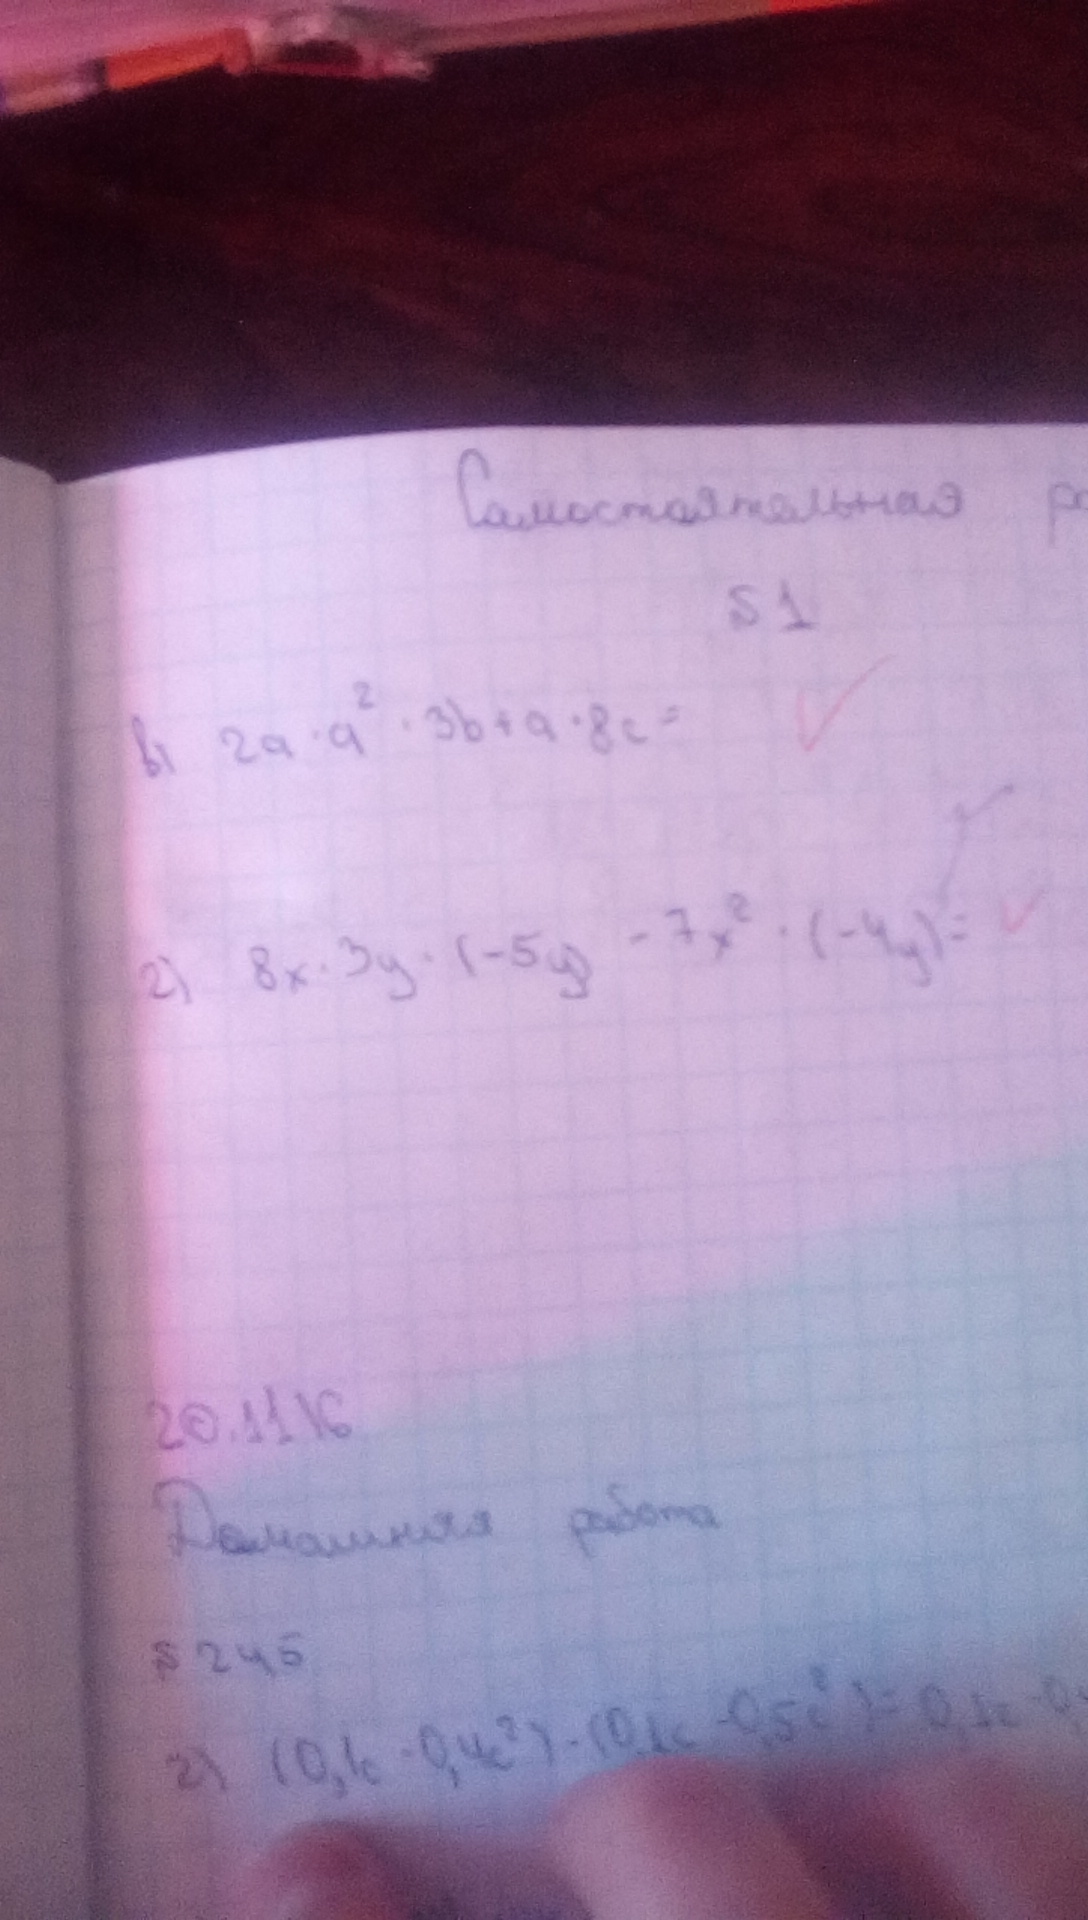 Самостоятельная
§1
в) 2a · a² · 3b + a · 8c =
г) 8x · 3y · (-5y) - 7x² · (-4y) =
20.11 16
Домашняя работа
§ 245
г) (0,1c - 0,4c²) - (0,1c - 0,5c²) = 0,1c -